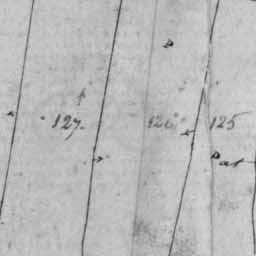 127. 126 125